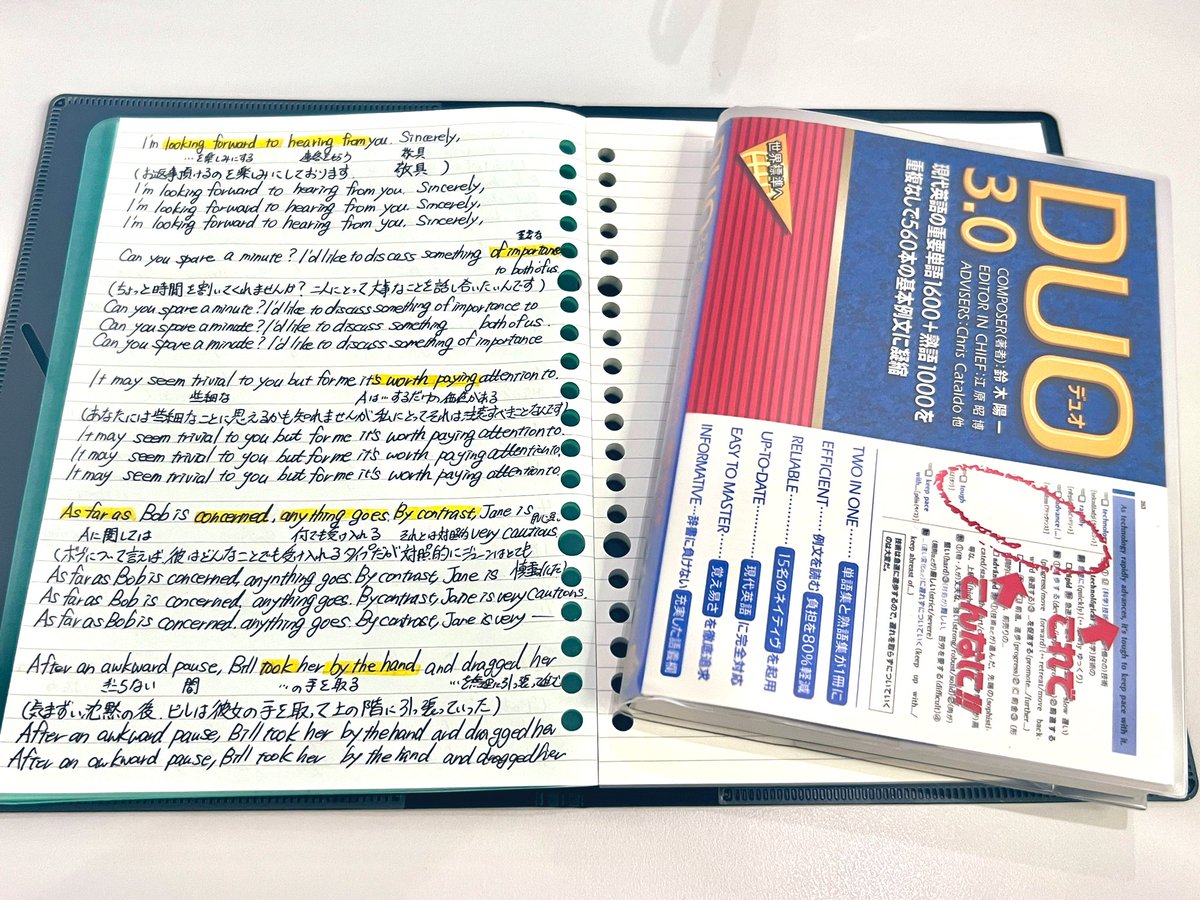 I'm looking forward to hearing from you. Sincerely,
…を楽しみにする 連絡をもらう 敬具
(お返事頂けるのを楽しみにしております. 敬具)
I'm looking forward to hearing from you. Sincerely,
I'm looking forward to hearing from you. Sincerely,
I'm looking forward to hearing from you. Sincerely,
重要な
Can you spare a minute? I'd like to discuss something of importance
to both of us.
(ちょっと時間を割いてくれませんか? 二人にとって大事なことを話し合いたいんです)
Can you spare a minute? I'd like to discuss something of importance to
Can you spare a minute? I'd like to discuss something both of us.
Can you spare a minute? I'd like to discuss something of importance
It may seem trivial to you but for me it's worth paying attention to.
些細な Aは…するだけの価値がある
(あなたには些細なことに思えるかも知れませんが私にとってそれは注意すべきことなんです)
It may seem trivial to you but for me it's worth paying attention to.
It may seem trivial to you but for me it's worth paying attention,
It may seem trivial to you but for me it's worth paying attention to.
As far as Bob is concerned, anything goes. By contrast, Jane is
Aに関しては 何でも受け入れる それとは対照的に very cautious
(ボブについて言えば、彼はどんなことでも受け入れるタイプだが対照的にジェーンはとても
慎重(だ)
As far as Bob is concerned, anynthing goes. By contrast, Jane is
As far as Bob is concerned, anything goes. By contrast, Jane is very cautions.
As far as Bob is concerned. anything goes. By contrast, Jane is very —
After an awkward pause, Bill took her by the hand and dragged her
気まずい 間 …の手を取る
(気まずい沈黙の後、ビルは彼女の手を取って上の階に引っ張っていった)
After an awkward pause, Bill took her by the hand and dragged her
After an awkward pause, Bill took her by the hand and dragged her
世界標準へ
DUO
デュオ
3.0
COMPOSER(著者):鈴木陽一
EDITOR IN CHIEF:江原昭博
ADVISERS:Chris Cataldo 他
現代英語の重要単語1600+熟語1000を
重複なしで560本の基本例文に凝縮
TWO IN ONE……単語集と熟語集が1冊に
EFFICIENT……例文を読む負担を80%軽減
RELIABLE……15名のネイティヴを起用
UP-TO-DATE……現代英語に完全対応
EASY TO MASTER……覚え易さを徹底追求
INFORMATIVE…辞書に負けない充実した語彙欄
As technology rapidly advances, it's tough to keep pace with it.
technology
rapidly
advance
tough
keep pace
with
これで
こんなに!!
技術は急速に進歩するので、遅れを取らずについていく
のは大変だ。